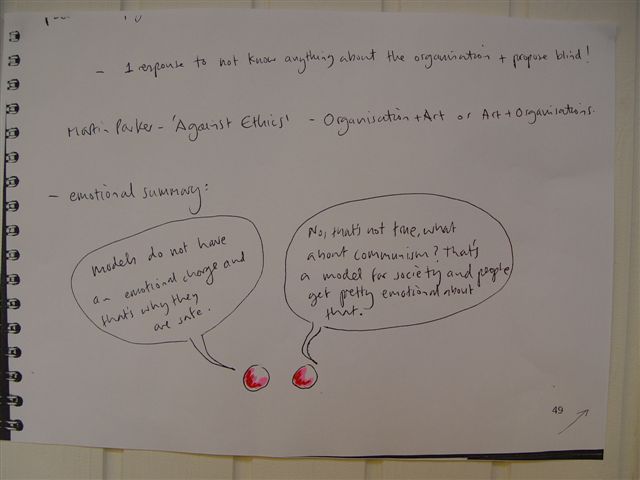 - 1 response to not know anything about the organisation + propose blind!
Martin Parker - 'Against Ethics' - Organisation + Art or Art + Organisations.
- emotional summary:
Models do not have
an emotional charge and
that's why they
are safe.
No, that's not true, what
about communism? That's
a model for society and people
get pretty emotional about
that.
49